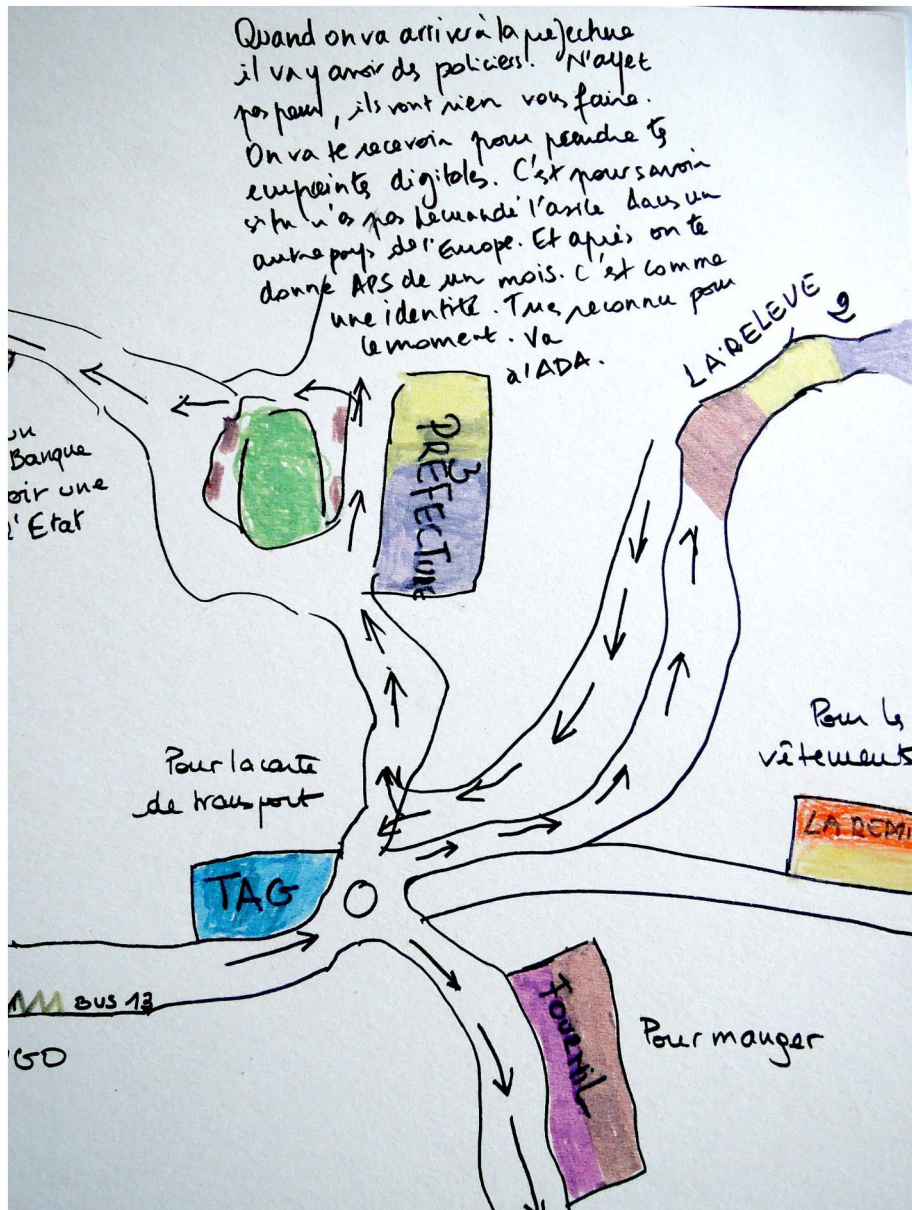 Quand on va arriver à la préfecture
il va y avoir des policiers. N'ayet
pas peur, ils vont rien vous faire.
On va te recevoir pour prendre tes
empreintes digitales. C'est pour savoir
si tu n'as pas demandé l'asile dans un
autre pays de l'Europe. Et après on te
donne APS de un mois. C'est comme
une identité. Tu es reconnu pour
le moment. Va
à l'ADA.
LA RELEVE 2
un
Banque
oir une
d'Etat
PREFECTURE
3
Pour les
vêtements
Pour la carte
de transport
LA REMI
TAG
BUS 13
GO
FOURNIL
Pour manger